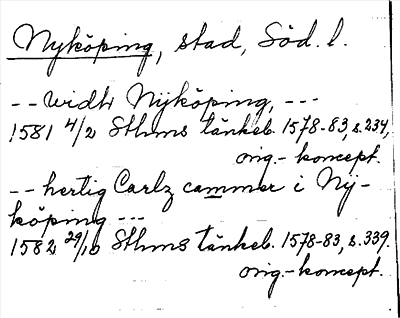 Nyköping, stad, Söd. l.
-- widh Nyköping, ---
1581 4/2 Sthms tänkeb. 1578-83, s. 234,
orig.- koncept.
-- hertig Carlz cammer i Ny-
köping ---
1582 29/10 Sthms tänkeb. 1578-83, s. 339.
orig.- koncept.